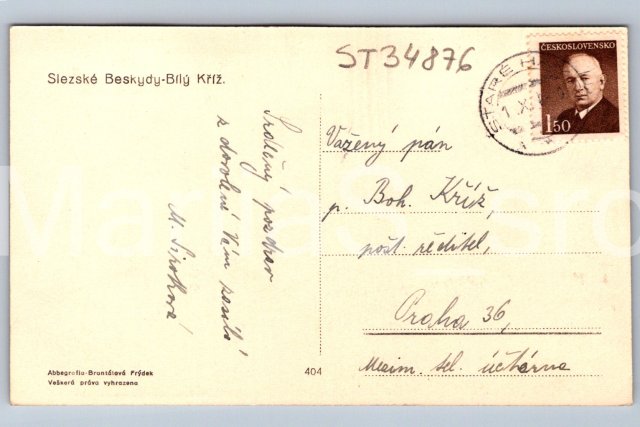 Slezské Beskydy-Bílý Kříž.
ST34876
ČESKOSLOVENSKO
1.50
STARÉ H
Srdečný pozdrav
z dovolené Vám zasílá
M. Široková
Vážený pán
p. Boh. Kříž,
pošt. ředitel,
Praha 36,
tel. účtárna
Abbegrafia-Brantálová Frýdek
Veškerá práva vyhrazena
404